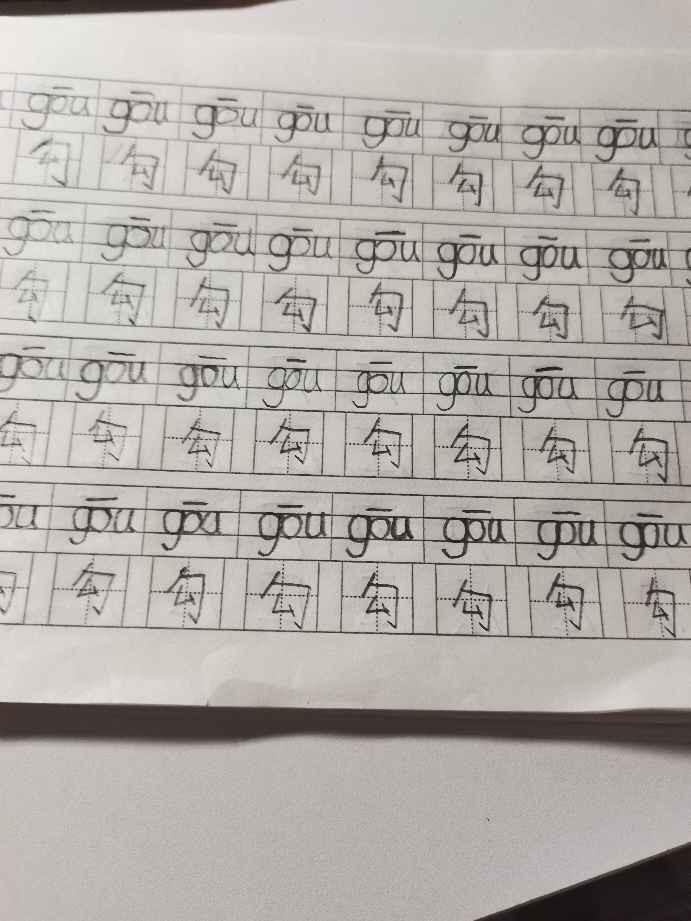 gōu gōu gōu gōu gōu gōu gōu gōu
勾 勾 勾 勾 勾 勾 勾 勾
gōu gōu gōu gōu gōu gōu gōu gōu
勾 勾 勾 勾 勾 勾 勾 勾
gōu gōu gōu gōu gōu gōu gōu gōu
勾 勾 勾 勾 勾 勾 勾 勾
ōu gōu gōu gōu gōu gōu gōu gōu
勾 勾 勾 勾 勾 勾 勾 勾